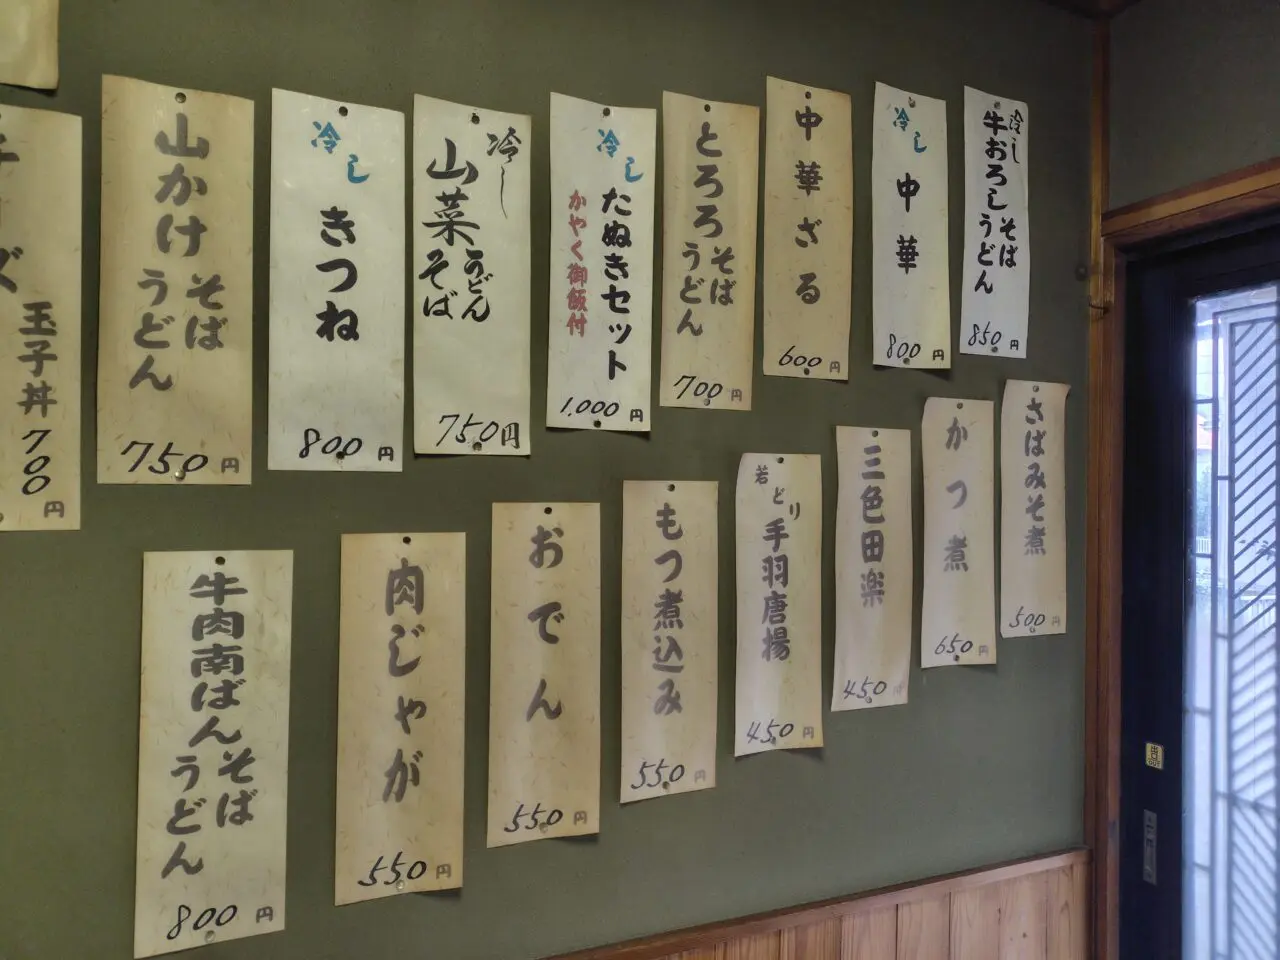 冷し
牛おろしそば
うどん
850円
冷し
中華
800円
中華ざる
600円
とろろそば
うどん
700円
冷し
たぬきセット
かやく御飯付
1,000円
冷し
山菜うどん
そば
750円
冷し
きつね
800円
山かけそば
うどん
750円
玉子丼
700円
さばみそ煮
500円
かつ煮
650円
三色田楽
450円
若どり
手羽唐揚
450円
もつ煮込み
550円
おでん
550円
肉じゃが
550円
牛肉南ばんそば
うどん
800円